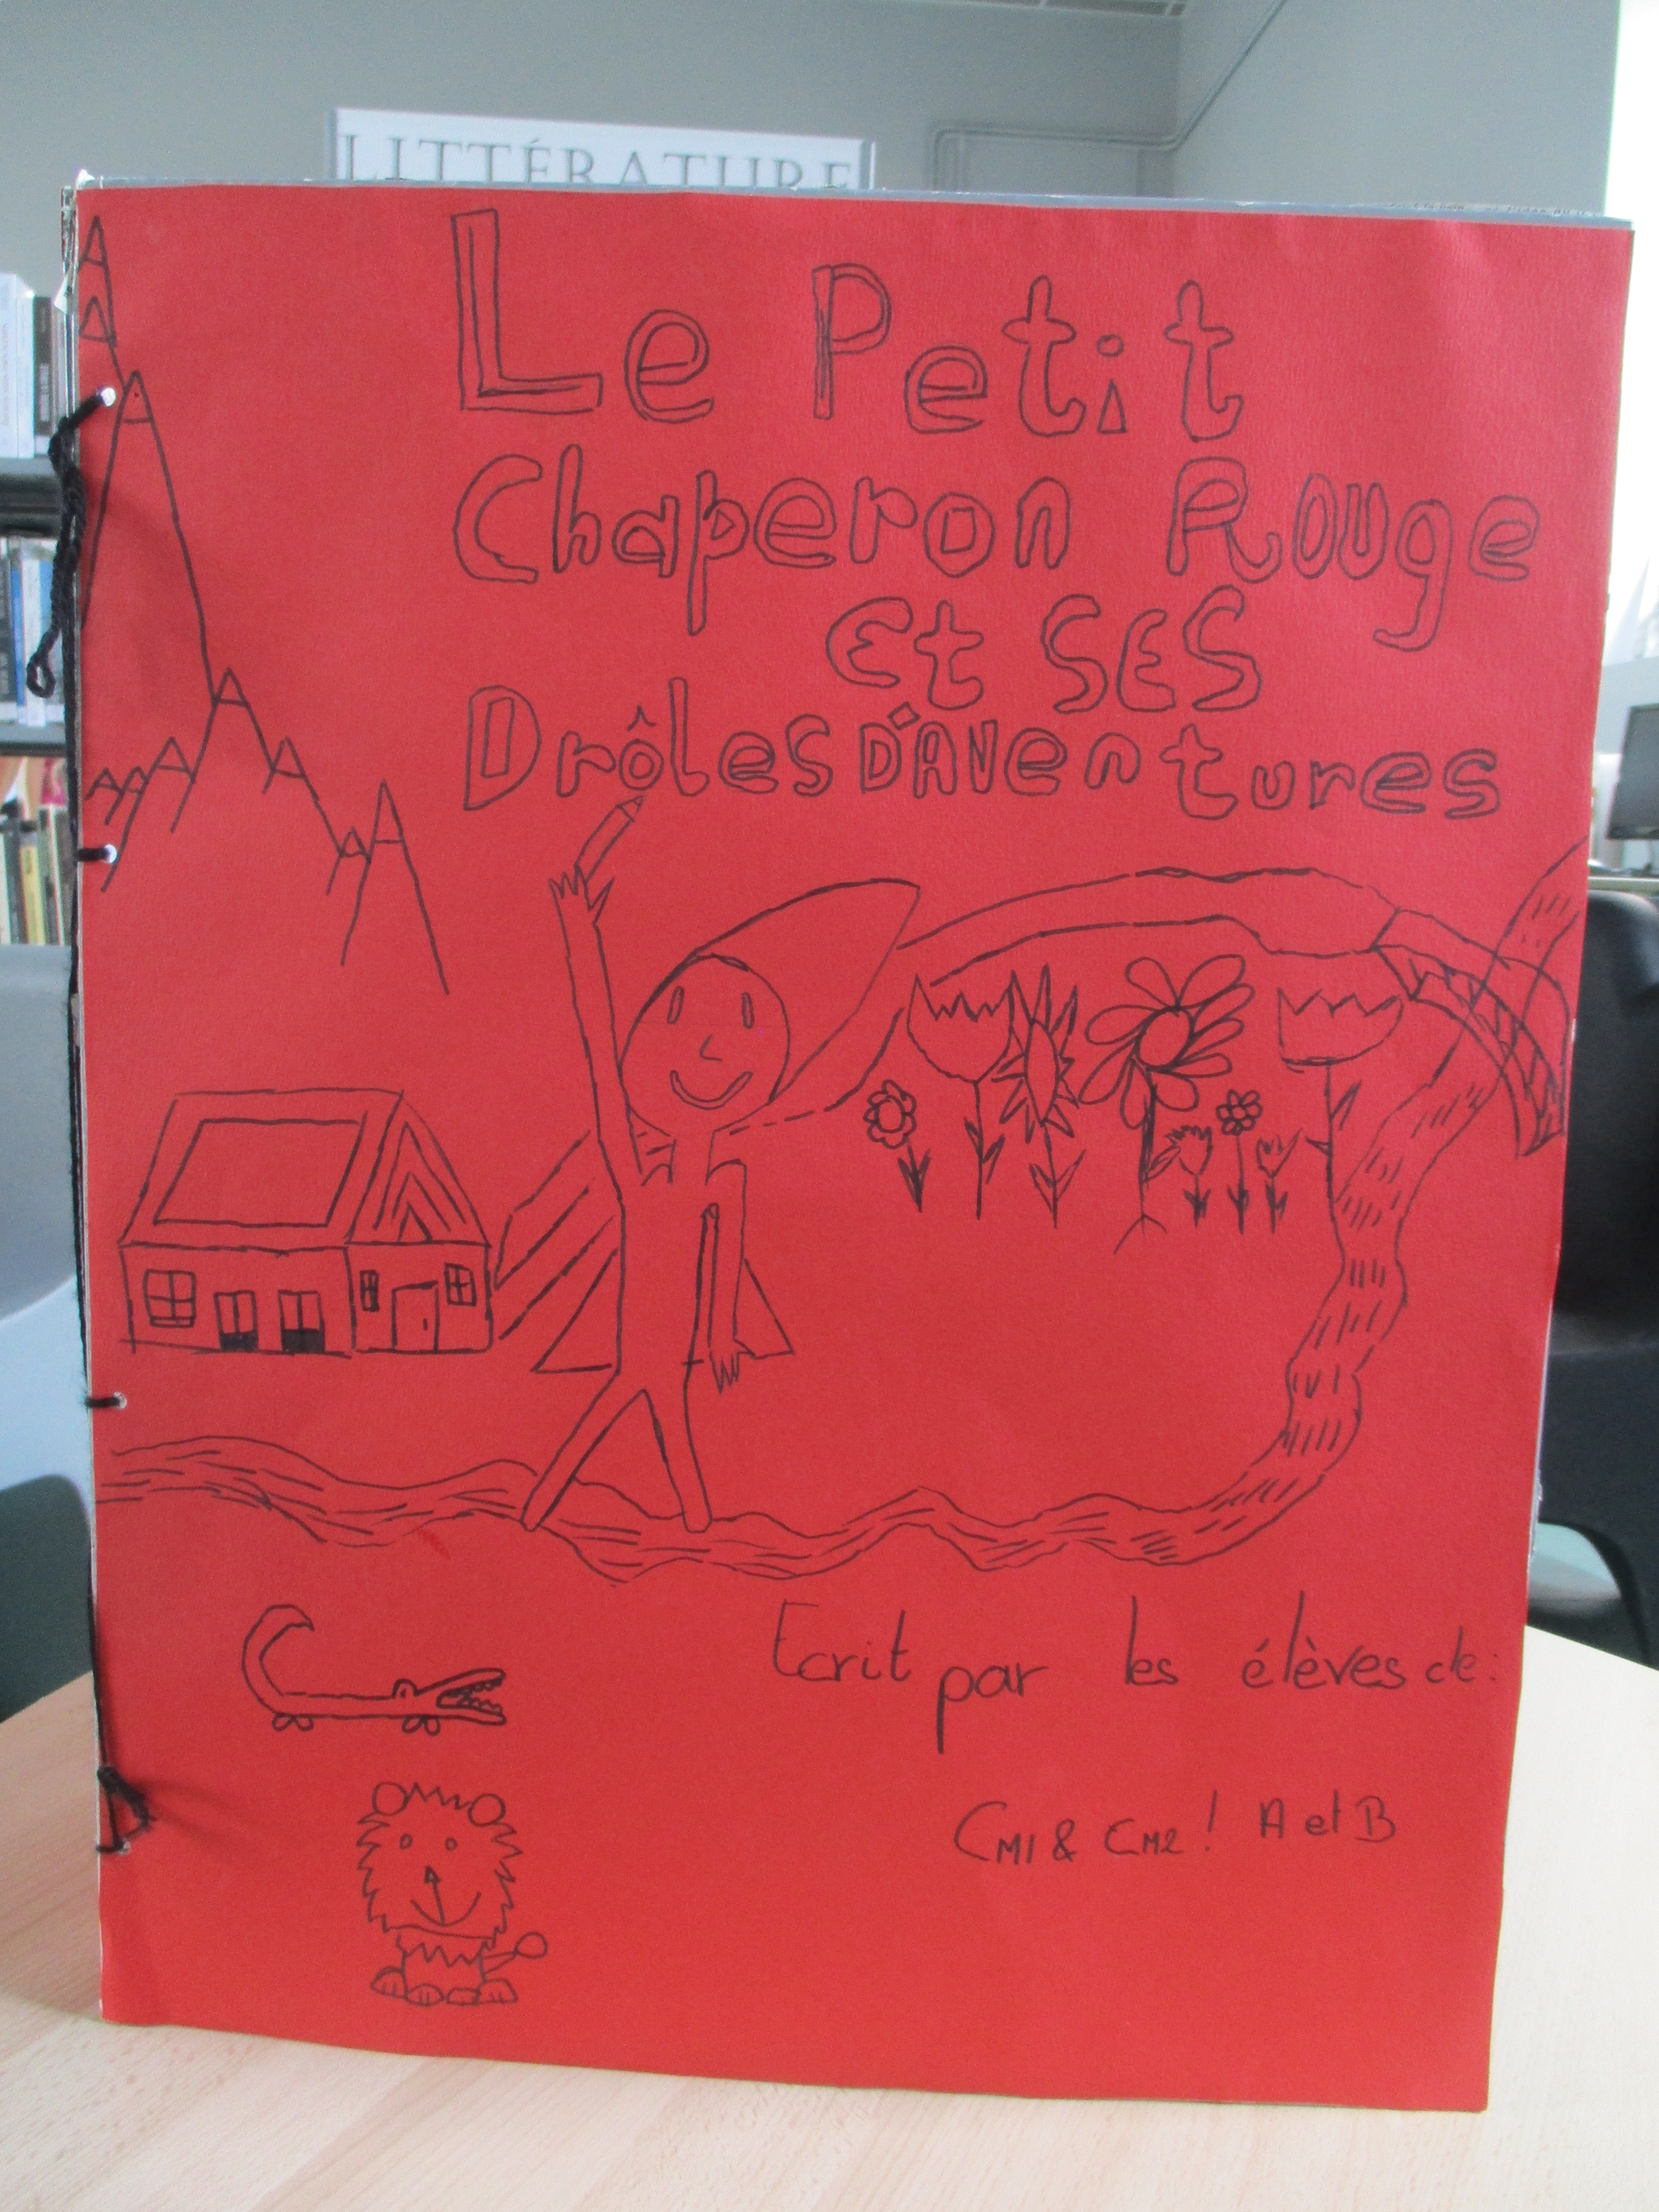 LITTÉRATURE
Le Petit
Chaperon Rouge
Et SES
DrôleS D'AVentures
Ecrit par les élèves de:
CM1 & CM2! A et B